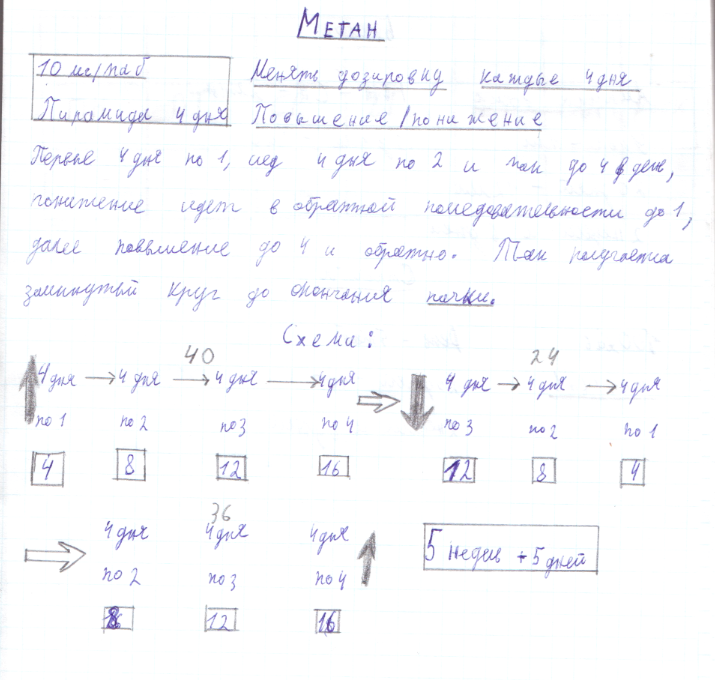 Метан
10 мг/таб Менять дозировку каждые 4 дня
Пирамида 4 дня Повышение/понижение
Первые 4 дня по 1, след 4 дня по 2 и так до 4 в день,
понижение идет в обратной последовательности до 1,
далее повышение до 4 и обратно. Так получается
замкнутый круг до окончания пачки.
Схема:
40 24
4 дня → 4 дня → 4 дня → 4 дня 4 дня → 4 дня → 4 дня
по 1 по 2 по 3 по 4 по 3 по 2 по 1
4 8 12 16 12 8 4
36
4 дня 4 дня 4 дня
по 2 по 3 по 4
8 12 16
5 недель + 5 дней